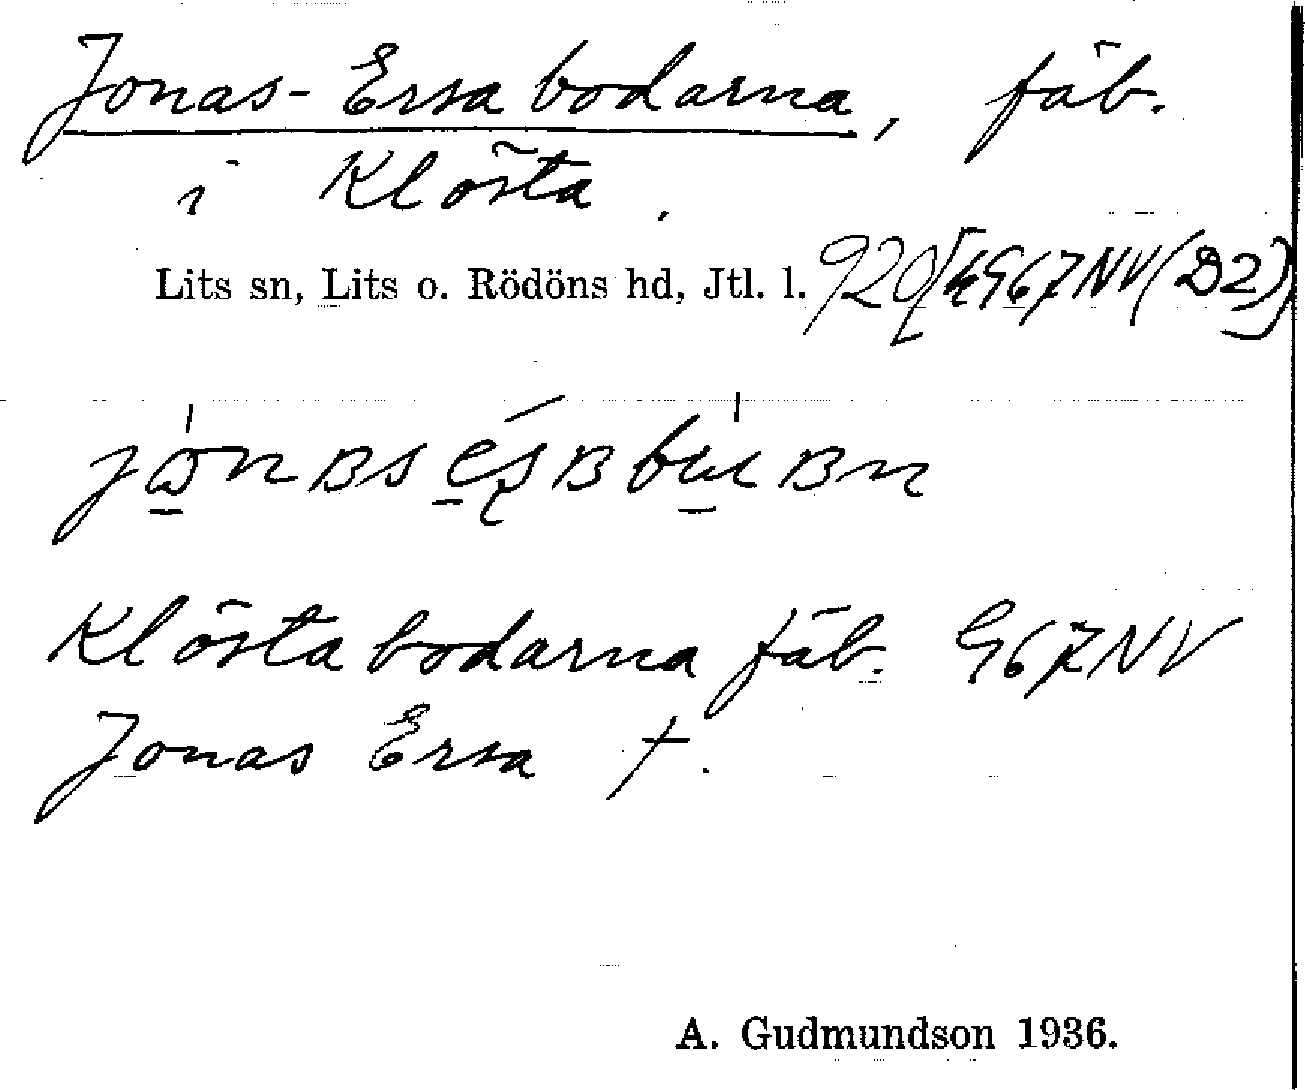 Jonas-Ersa bodarna, fäb.
i Klösta.
Lits sn, Lits o. Rödöns hd, Jtl. l. 920 [G967NV(D2)]
Klösta bodarna fäb. G67NV
Jonas Ersa †.
A. Gudmundson 1936.